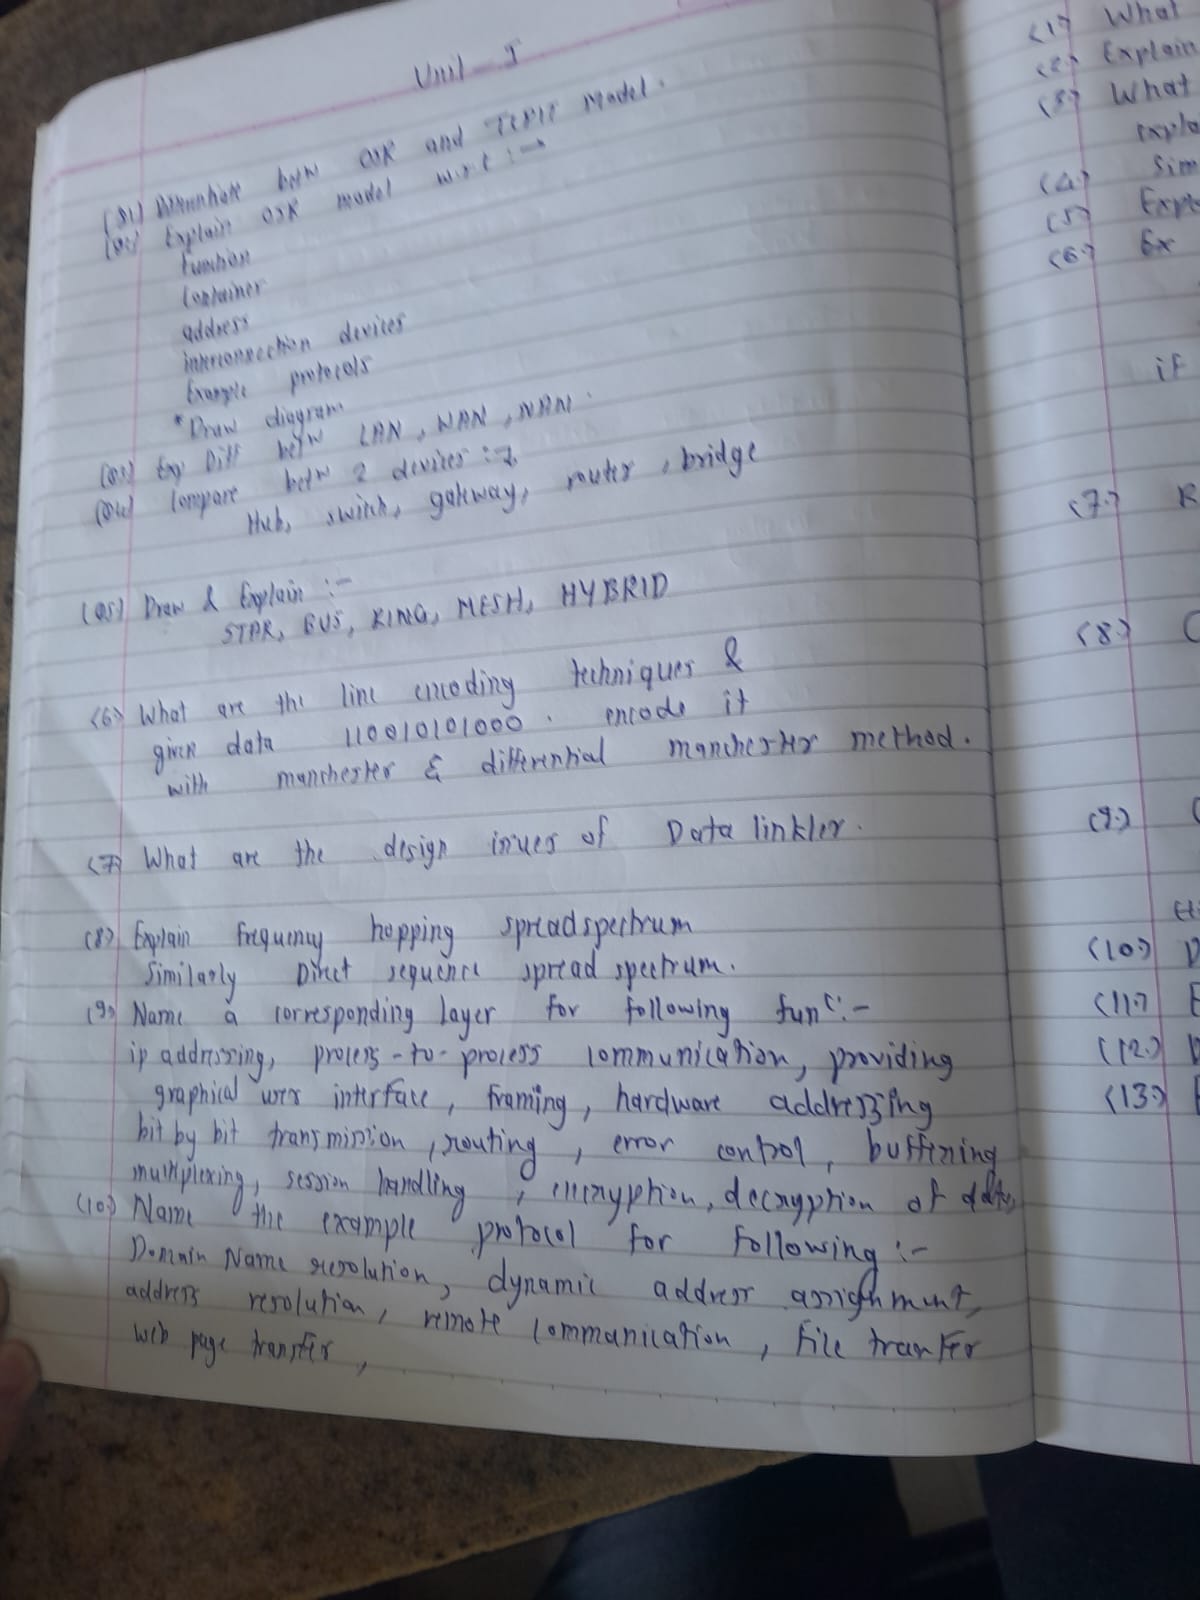 Unit - I
(Q1) Differentiate betw OSI and TCP/IP Model.
(Q2) Explain OSI model w.r.t :→
function
Container
address
interconnection devices
Example protocols
*Draw diagram
(Q3) Diff betw LAN, WAN, MAN.
(Q4) Compare betw 2 devices :→
Hub, switch, gateway, router, bridge
(Q5) Draw & Explain :-
STAR, BUS, RING, MESH, HYBRID
(6) What are the line encoding techniques &
given data 110010101000. encode it
with manchester & differential manchester method.
(7) What are the design issues of Data linkler.
(8) Explain frequency hopping spreadspectrum
Similarly Direct sequence spread spectrum.
(9) Name a corresponding layer for following func :-
ip addressing, process-to-process communication, providing
graphical user interface, framing, hardware addressing
bit by bit transmission, routing, error control, buffering
multiplexing, session handling, encryption, decryption of data,
(10) Name the example protocol for following :-
Domain Name resolution, dynamic address assignment,
address resolution, remote communication, file transfer
web page transfer,
(1) What
(2) Explain
(3) What
expla
(4) Sim
(5) Expl
(6) Ex
if
(7) R
(8) C
(9)
(10)
(11)
(12)
(13)